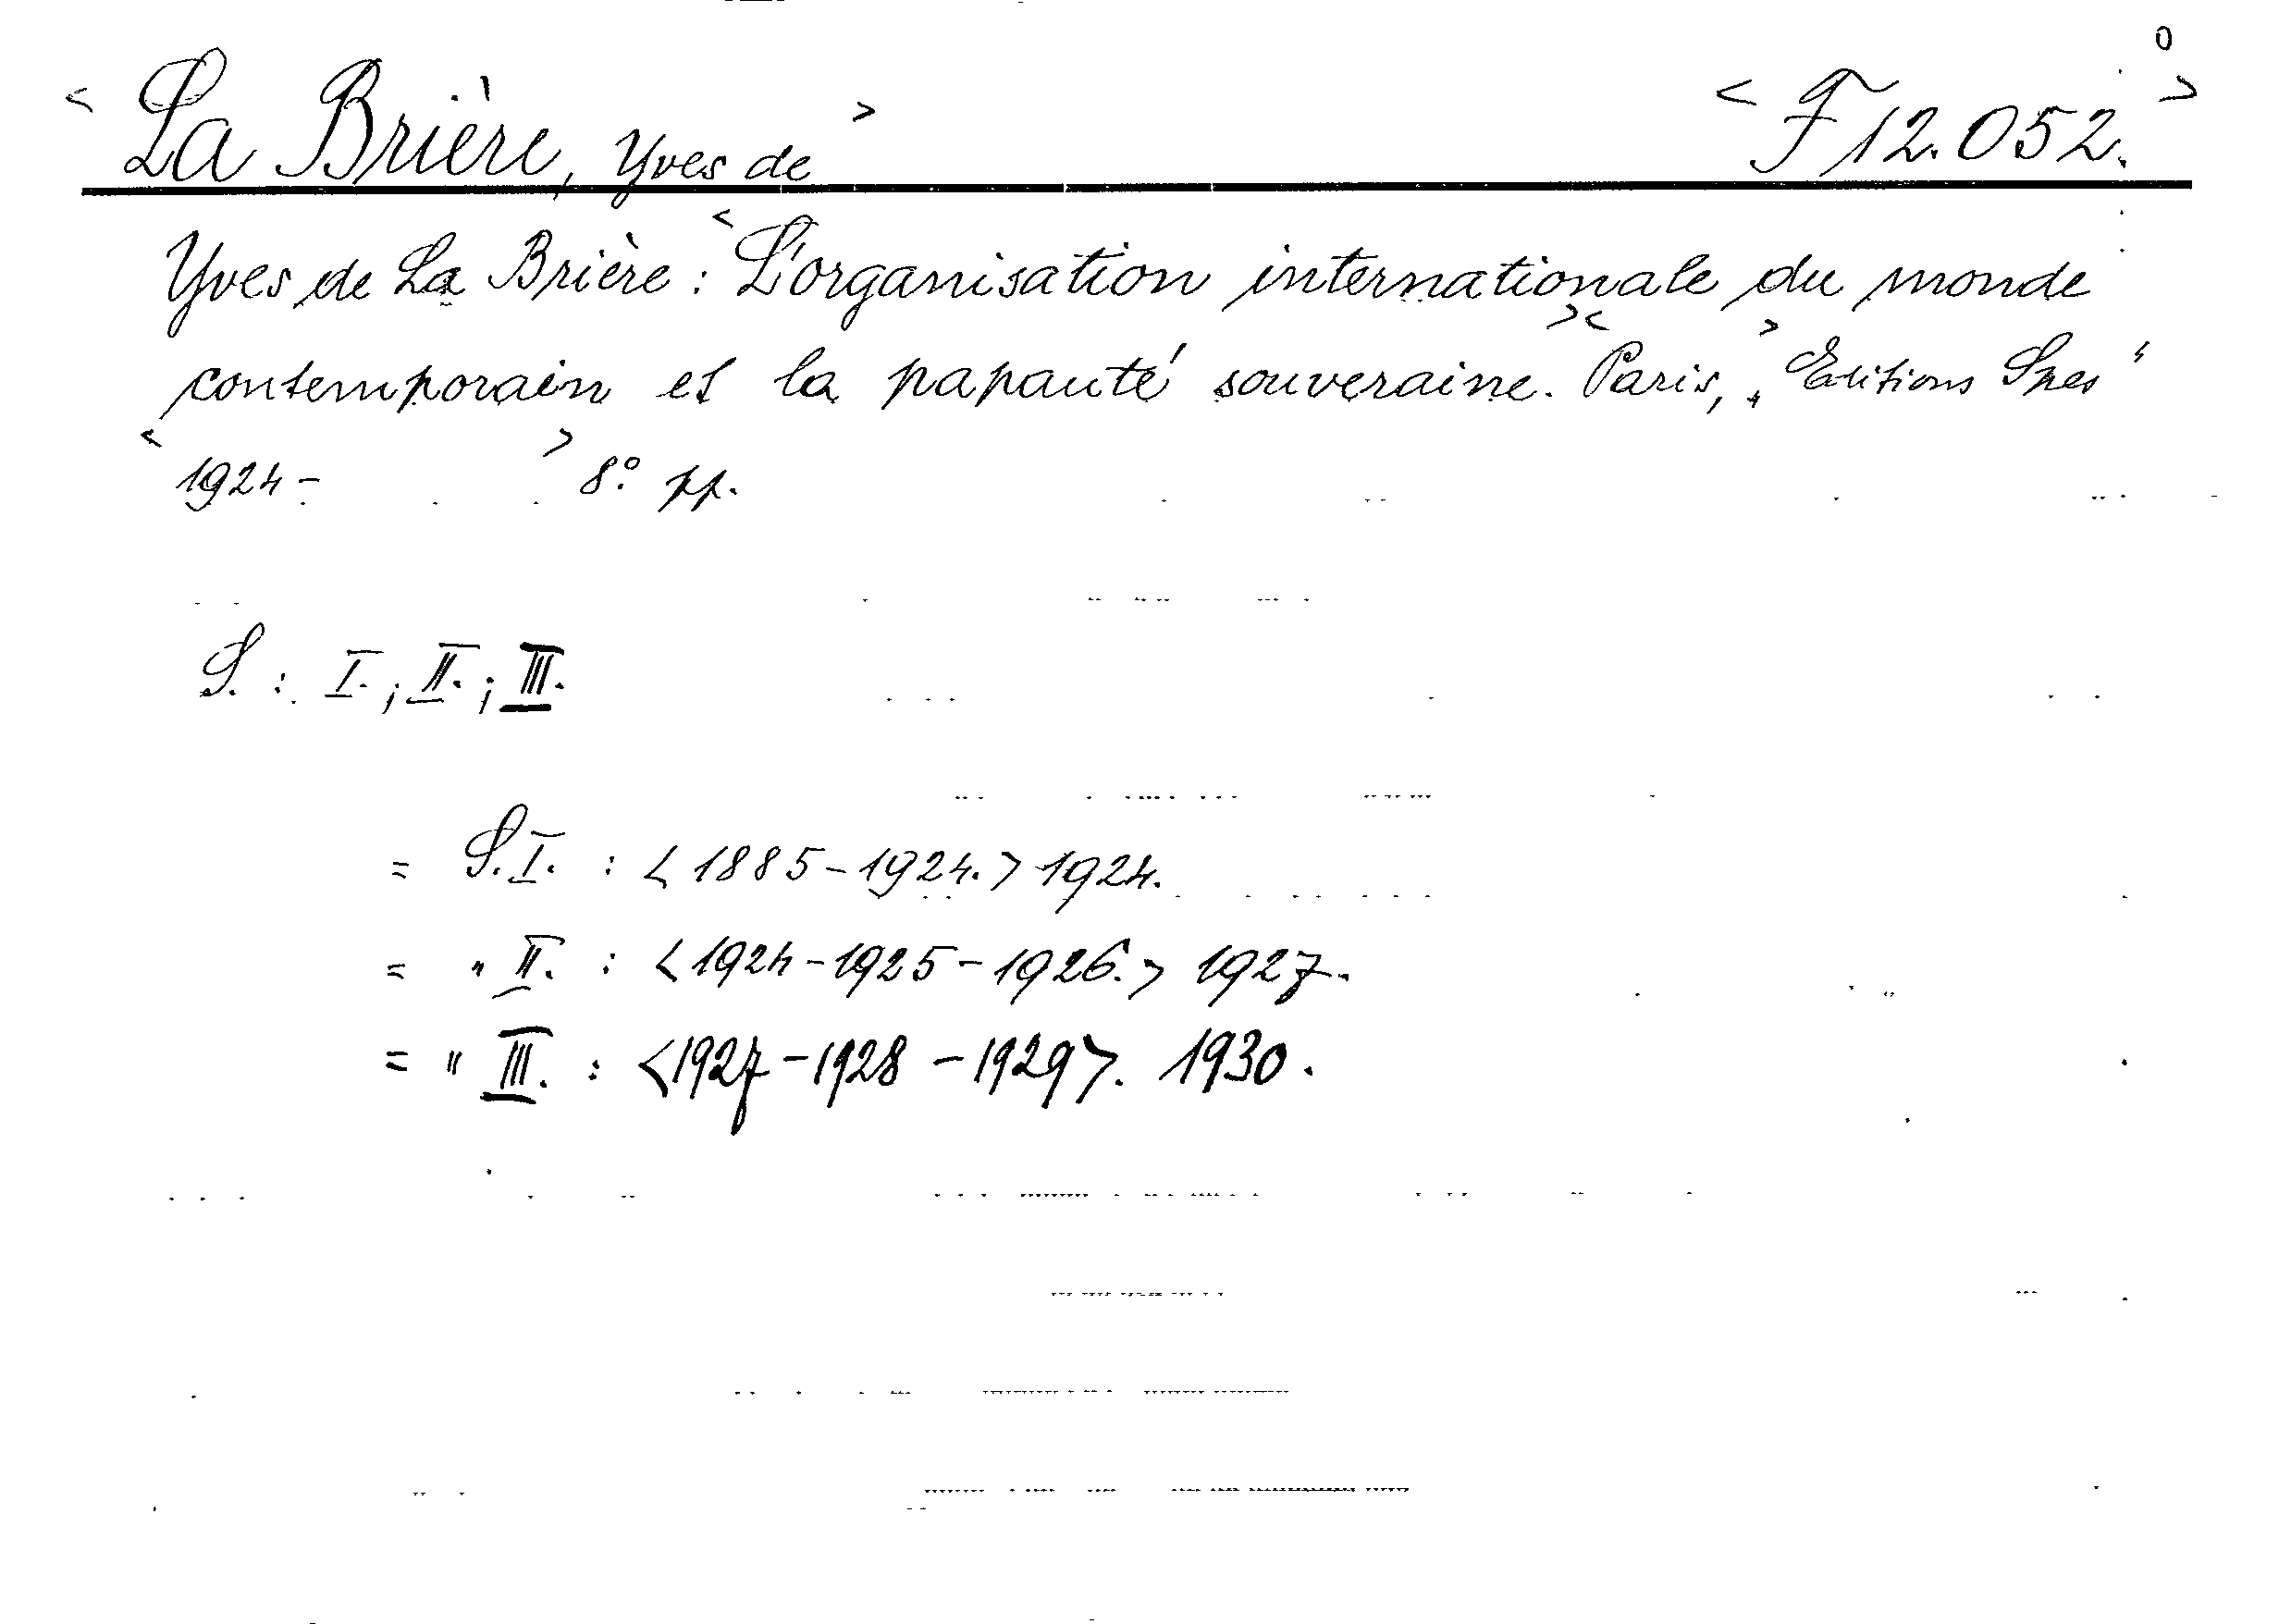 < La Brière, Yves de > < F 12.052. > 0
Yves de La Brière : < L'organisation internationale du monde
contemporain et la papauté souveraine. > < Paris, > „Editions Spes“
< 1924 – > 8° pp.
S. : I. ; II. ; III.
= S. I. : < 1885 – 1924. > 1924.
= " II. : < 1924 – 1925 – 1926. > 1927.
= " III. : < 1927 – 1928 – 1929 >. 1930.